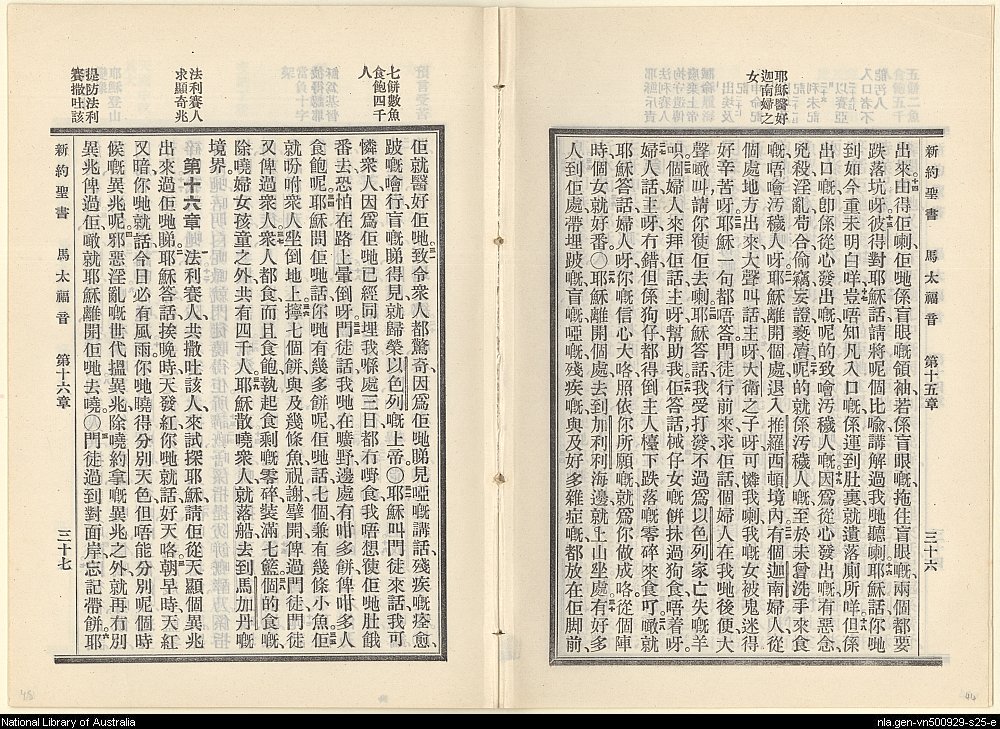 新約聖書 馬太福音 第十五章 三十六
耶穌醫好
迦南婦之
女
出來由得佢喇佢哋係盲眼嘅領袖若係盲眼嘅拖住盲眼嘅兩個都要
跌落坑呀彼得對耶穌話請將呢個比喻講解過我哋聽喇耶穌話你哋
到如今重未明白咩豈唔知凡入口嘅係運到肚裏就遺落廁所咩但係
出口嘅卽係從心發出嘅呢的致噲汚穢人嘅因爲從心發出嘅有惡念
兇殺淫亂苟合偷竊妄證褻瀆呢的就係汚穢人嘅至於未曾洗手來食
嘅唔噲汚穢人呀耶穌離開個處退入推羅西頓境內有個迦南婦人從
個處地方出來大聲叫話主呀大衛之子呀可憐我喇我嘅女被鬼迷得
好辛苦呀耶穌一句都唔答門徒行前來求佢話個婦人在我哋後便大
聲噉叫請你使佢去喇耶穌答話我受打發不過爲以色列家亡失嘅羊
呮個婦人來拜佢話主呀幫助我佢答話械仔女嘅餅抹過狗食唔着呀
婦人話主呀有錯但係狗仔都得倒主人檯下跌落嘅零碎來食吖噉就
耶穌答話婦人呀你嘅信心大咯照依你所願嘅就爲你做成咯從個陣
時個女就好番〇耶穌離開個處去到加利利海邊就上山坐處有好多
人到佢處帶埋跛嘅盲嘅啞嘅殘疾嘅與及好多雜症嘅都放在佢脚前
七餅數魚
食飽四千
人
法利賽人
求顯奇兆
提防法利
賽撒吐該
佢就醫好佢哋致令衆人都驚奇因爲佢哋睇見啞嘅講話殘疾嘅痊愈
跛嘅噲行盲嘅睇得見就歸榮以色列嘅上帝〇耶穌叫門徒來話我可
憐衆人因爲佢哋已經同埋我喺處三日都冇嘢食我唔想使佢哋肚餓
番去恐怕在路上暈倒呀門徒話我哋在曠野邊處有咁多餅俾咁多人
食飽呢耶穌問佢哋話你哋有幾多餅呢佢哋話七個兼有幾條小魚佢
就吩咐衆人坐倒地上攞七個餅與及幾條魚祝謝擘開俾過門徒門徒
又俾過衆人衆人都食而且食飽執起食剩嘅零碎裝滿七籃個的食嘅
除嘵婦女孩童之外共有四千人耶穌散嘵衆人就落船去到馬加丹嘅
境界。
第十六章 法利賽人共撒吐該人來試探耶穌請佢從天顯個異兆
出來過佢哋睇耶穌答話挨晚時天發紅你哋就話好天咯朝早時天紅
又暗你哋就話今日必有風雨你哋曉得分別天色但唔能分別呢個時
候嘅異兆呢邪惡淫亂嘅世代搵異兆除嘵約拿嘅異兆之外就再冇別
異兆俾過佢噉就耶穌離開佢哋去嘵〇門徒過到對面岸忘記帶餅耶
新約聖書 馬太福音 第十六章 三十七
National Library of Australia
nla.gen-vn500929-s25-e